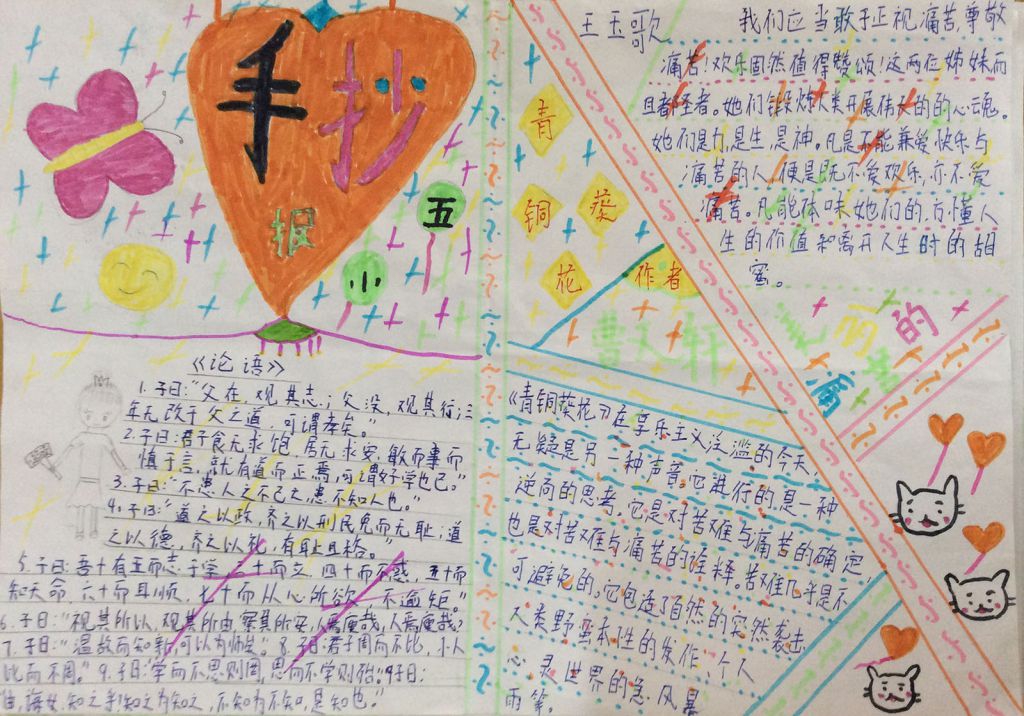 手抄
报
五
小
《论语》
1.子曰:“父在,观其志;父没,观其行;三
年无改于父之道,可谓孝矣。”
2.子曰:君子食无求饱,居无求安,敏而事而
慎于言,就有道而正焉,可谓好学也已。”
3.子曰:“不患人之不己知,患不知人也。”
4.子曰:“道之以政,齐之以刑民免而无耻;道
之以德,齐之以礼,有耻且格。”
5.子曰:吾十有五而志于学,三十而立,四十而不惑,五十而
知天命,六十而耳顺,七十而从心所欲,不逾矩。”
6.子曰:“视其所以,观其所由,察其所安,人焉廋哉?人焉廋哉?
7.子曰:“温故而知新,可以为师矣。”8.子曰:君子周而不比,小人
比而不周。”9.子曰:“学而不思则罔,思而不学则殆。”9子曰:
由,诲女,知之乎!知之为知之,不知为不知,是知也。”
王玉歌
青
铜
葵
花
作者
曹文轩
我们应当敢于正视痛苦,尊敬
痛苦!欢乐固然值得赞颂!这两位姊妹而
且都圣者。她们锻炼人类开展伟大的的心魂。
她们是力,是生,是神。凡是不能兼爱快乐与
痛苦的人,便是既不爱欢乐,亦不爱
痛苦。凡能体味她们的,方懂人
生的价值和离开人生时的甜
蜜。
美丽的
痛苦
《青铜葵花》在享乐主义泛滥的今天,
无疑是另一种声音。它进行的是一种
逆向的思考,它是对苦难与痛苦的确定,
也是对苦难与痛苦的诠释。苦难几乎是不
可避免的,它包含了自然的突然袭击、
人类野蛮本性的发作、个人
心灵世界的急风暴
雨等。